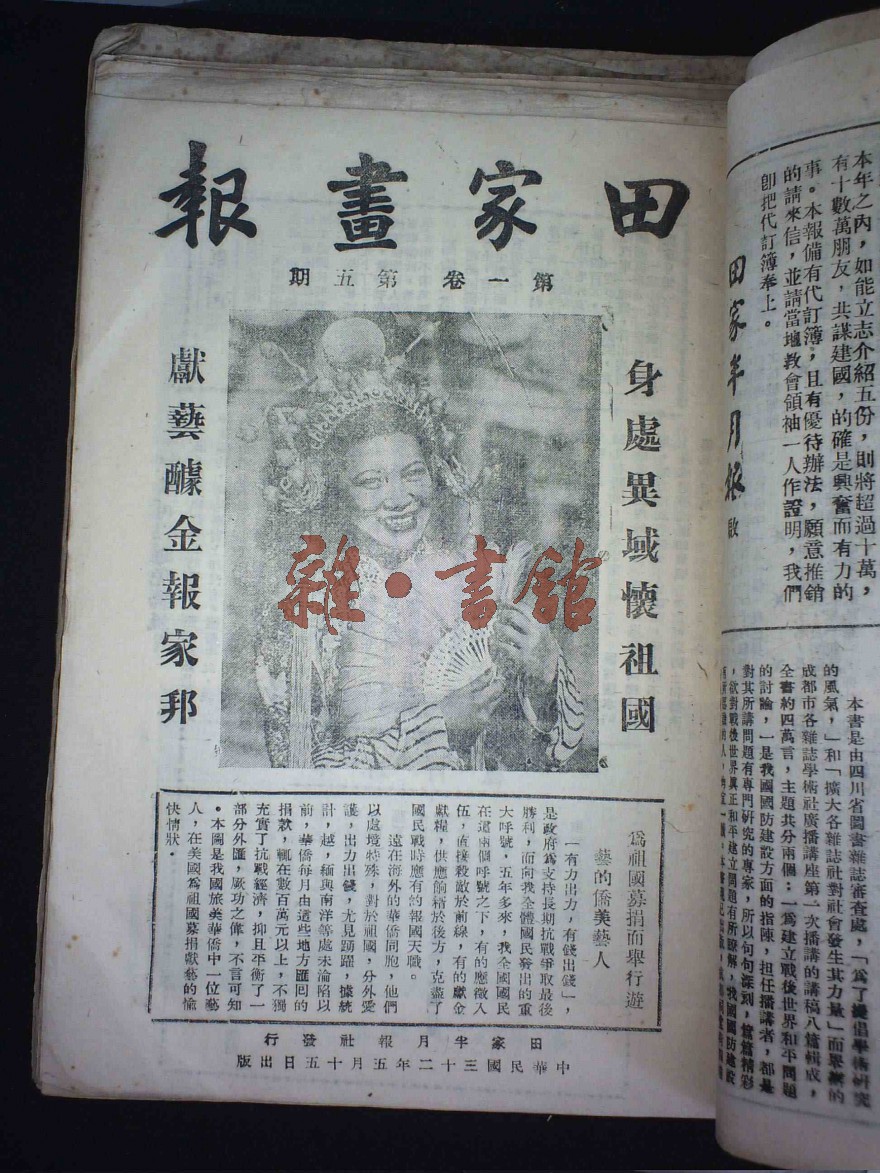 田家畫報
第一卷 第五期
身處異域懷祖國
獻藝醵金報家邦
雜·書館
為祖國募捐而舉行遊
藝的僑美藝人
「有力出力,有錢出錢」,
是政府為支持長期抗戰爭取最後
勝利,而向我全體國民發出的重
大呼號,五年多來,我全國國民
在這兩個呼號之下,有的應徵入
伍,直接殺敵於前線,有的獻金
獻糧,供應餉糈於後方,克盡了
國民戰時應有的報國天職。
遠在海外的華僑同胞,他們
以處境特殊,對於祖國,分外愛
護,出力出錢,尤見踴躍,據統
計,越,緬與南洋等處未淪陷以
前,華僑每月由這些地方匯回的
捐款,輒在數百萬元以上,不獨
充實了抗戰經濟,抑且平衡了一
部分外匯,厥功之偉,不言可知
。本圖是我國旅美華僑中一位藝
人,在美國為祖國募捐獻藝的愉
快情狀。
田家半月報社發行
中華民國三十二年五月十五日出版
本年之內,如能立志介紹五份,則將超過十萬,
有十數萬朋友,共謀建國,的確是興奮而有力的
事。本報備有代訂簿,且有優待辦法,願意推銷
的請來信,並請當地教會領袖一人作證明,我們
卽把代訂簿奉上。
田家半月報 啟
本書是由四川省圖書雜誌審查處,「為了提倡學術研究
的風氣,」和「擴大各雜誌社對社會發生其力量」而舉辦的
成都市各雜誌學術社廣播講座第一次播講的講稿八篇輯成,
全書約四萬言,主題共分兩個:一為建立戰後世界和平問題
的討論,一是我國國防建設方面的指陳,担任播講者,都是
對其所講問題有專門研究的專家,所以句句深刻,篇篇精彩
,欲對戰後世界真正和平建立問題有所瞭解,我國國防建設